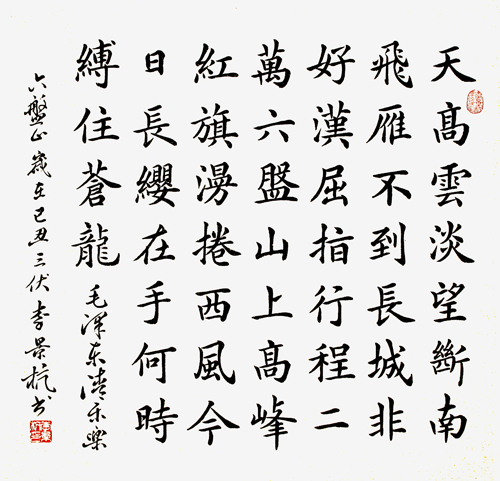 天高雲淡望斷南
飛雁不到長城非
好漢屈指行程二
萬六盤山上高峰
紅旗漫捲西風今
日長纓在手何時
縛住蒼龍 毛澤东清平樂
六盤山 歲在己丑三伏 李景杭书